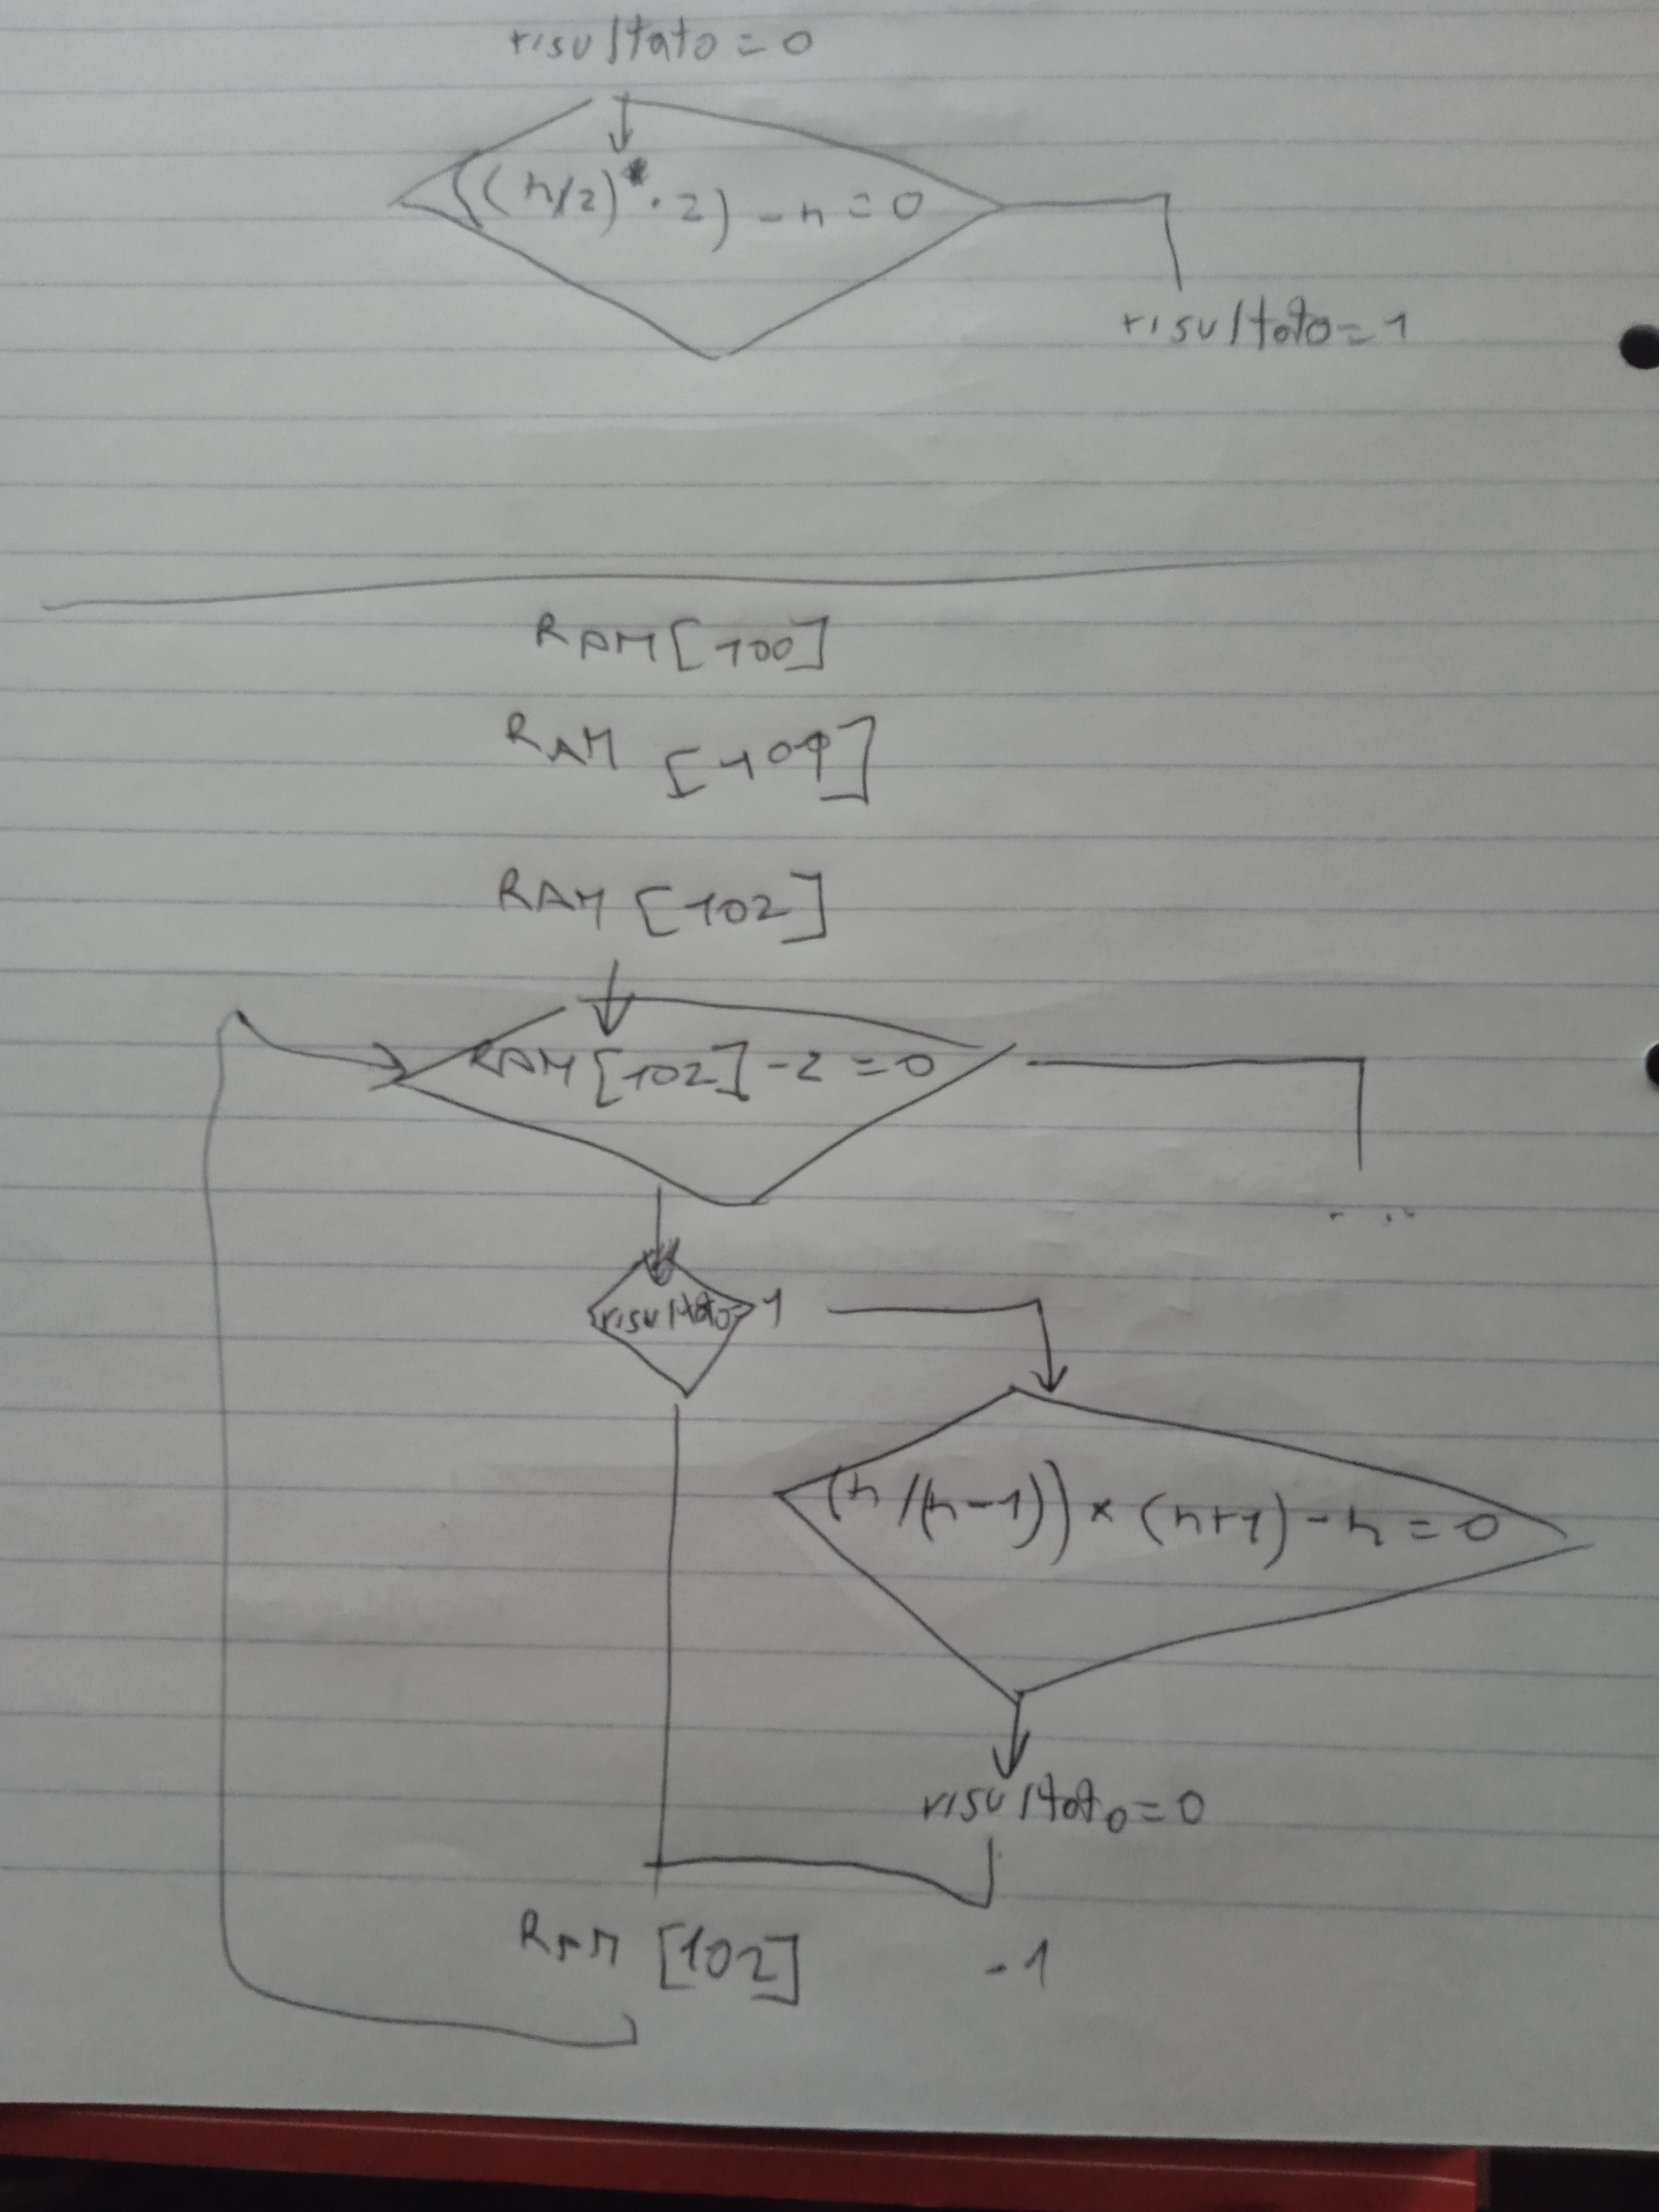 risultato = 0
((n/2) · 2) - n = 0
risultato = 1
RAM [100]
RAM
RAM [102]
RAM [102] - 2 = 0
. . .
risultato = 1
(n/(n-1)) × (n+1) - n = 0
risultato = 0
RAM [102] - 1